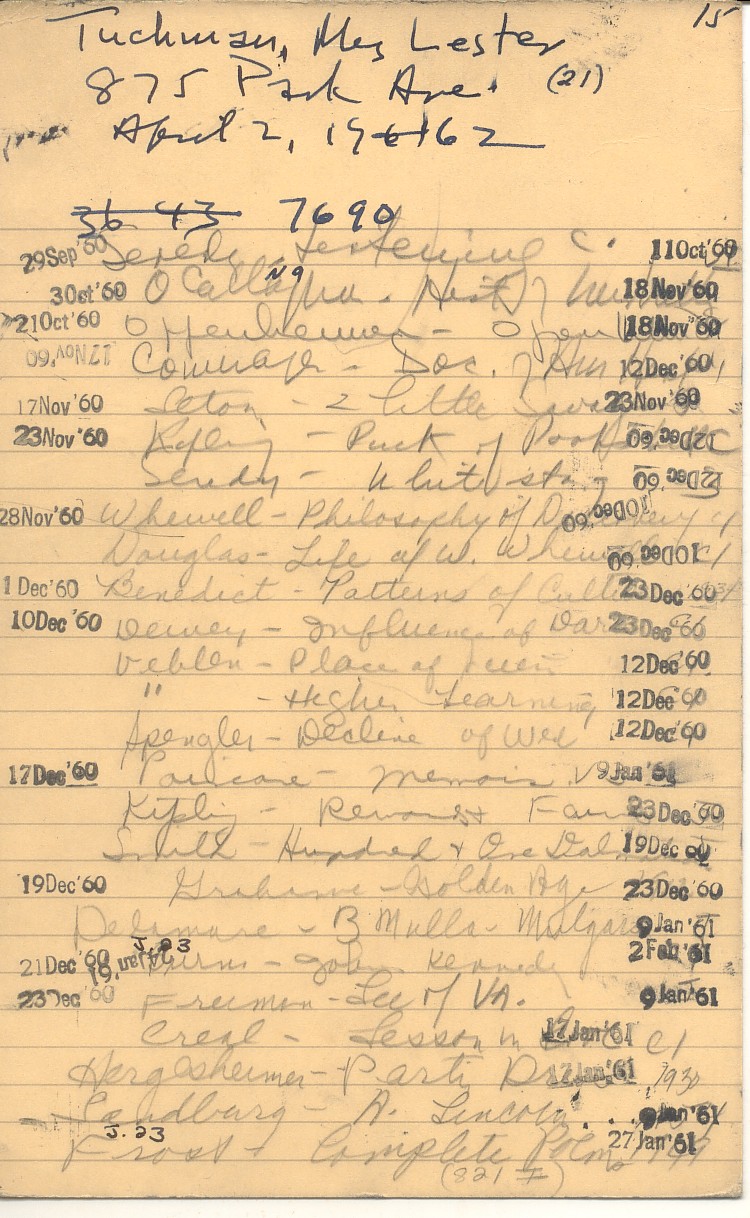 15
Tuchman, Mrs Lester
875 Park Ave. (21)
April 2, 1961 62
36 43 7690
29Sep'60 Seredy Listening C. 11Oct'60
3Oct'60 O'Callaghan. Hist of 18Nov'60
21Oct'60 Oppenheimer - Open 18Nov'60
17Nov'60 Commager - Doc. of Am 12Dec'60
17Nov'60 Seton - 2 little Sava 23Nov'60
23Nov'60 Kipling - Puck of Pook 12Dec'60
Seredy - White stag 12Dec'60
28Nov'60 Whewell - Philosophy of Discovery c1 10Dec'60
Douglas - Life of W. Whewell c1 10Dec'60
1Dec'60 Benedict - Patterns of Cult 23Dec'60
10Dec'60 Dewey - Influence of Dar 23Dec'60
Veblen - Place of Scien 12Dec'60
" - Higher Learning 12Dec'60
Spengler - Decline of Wes 12Dec'60
17Dec'60 Poincare - Memoirs V 9Jan'61
Kipling - Rewards & Fair 23Dec'60
Smith - Hundred & One Dal 19Dec'60
19Dec'60 Grahame - Golden Age 23Dec'60
Delamare - 3 Mulla-Mulgars 9Jan'61
21Dec'60 J.23 Burns - John Kennedy 2Feb'61
23Dec'60 Freeman - Lee of VA. 9Jan'61
Creal - Lesson in c1 17Jan'61
Hergesheimer - Party Dress 1930 17Jan'61
Sandburg - A. Lincoln 9Jan'61
J.23
Frost - Complete Poems 27Jan'61
(821 F)